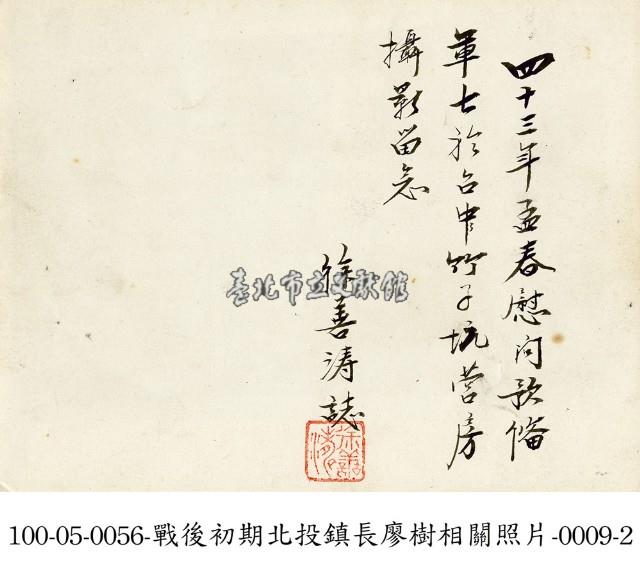 四十三年孟春慰问預備
軍士於台中竹子坑營房
攝影留念
徐善涛誌
臺北市立文獻館
100-05-0056-戰後初期北投鎮長廖樹相關照片-0009-2